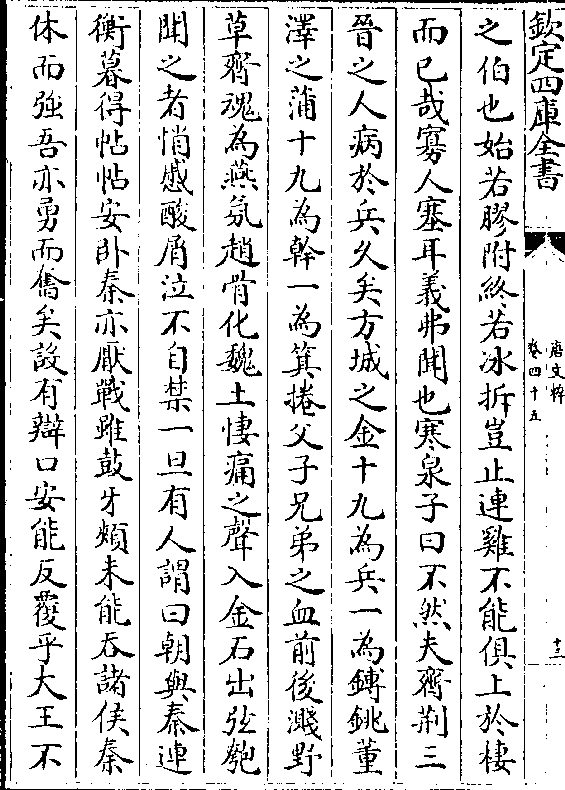 欽定四庫全書
唐文粹
卷四十五
十三
之伯也始若膠附終若冰拆豈止連雞不能俱上於棲
而已哉寡人塞耳義弗聞也寒泉子曰不然夫齊荆三
晉之人病於兵久矣方城之金十九為兵一為鎛銚董
澤之蒲十九為幹一為箕捲父子兄弟之血前後濺野
草齊魂為燕氛趙骨化魏土悽痛之聲入金石出弦匏
聞之者悄慼酸屑泣不自禁一旦有人謂曰朝與秦連
衡暮得帖帖安卧秦亦厭戰雖鼓牙頰未能吞諸侯秦
休而強吾亦勇而奮矣設有辯口安能反覆乎大王不